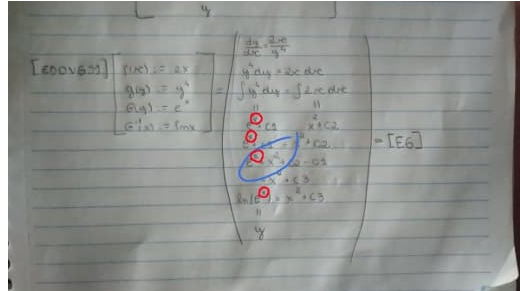 y
[EDOVGS1]
f(x) := 2x
g(y) := y⁴
G(y) := eˣ
G⁻¹(x) := ln x
=
dy/dx = 2x/y⁴
y⁴ dy = 2x dx
∫y⁴ dy = ∫2x dx
" "
+C1 x²+C2
+C1 = x²+C2
x²+C2-C1
x²+C3
= x²+C3
"
y
= [EG]